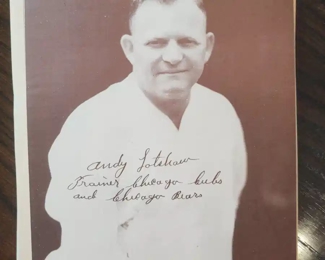 Andy Lotshaw
Trainer Chicago Cubs
and Chicago Bears